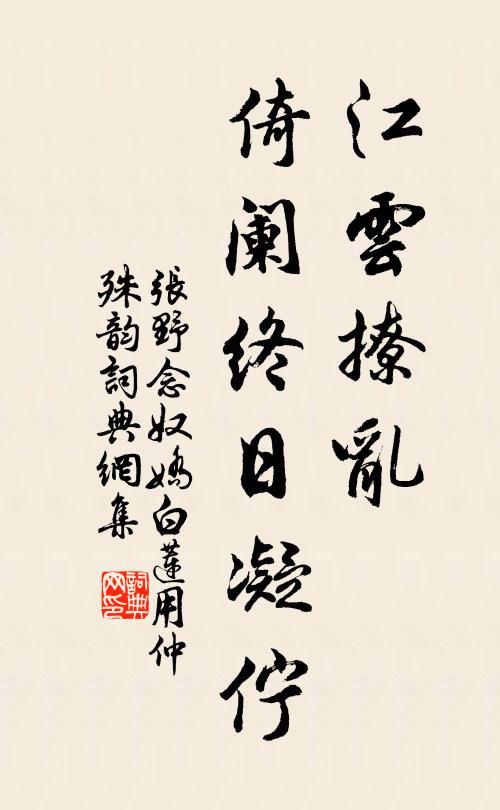 江雲撩亂
倚闌終日凝佇
張野念奴嬌白蓮用仲
殊韵詞典網集
詞典
网印